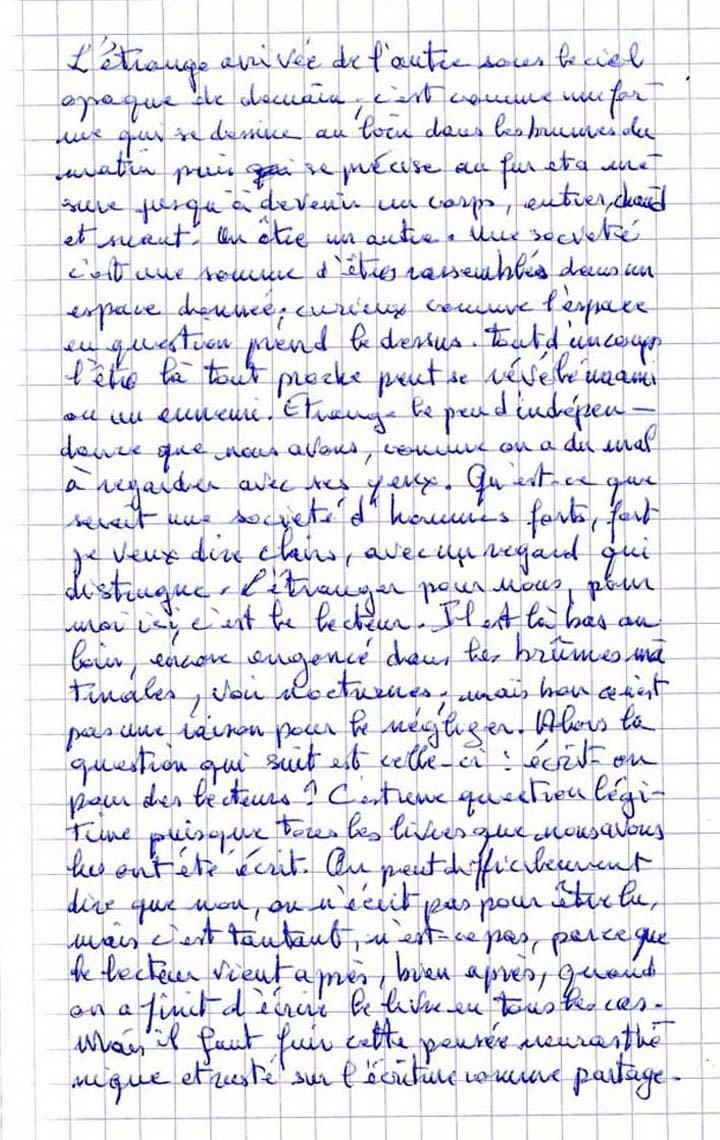 L'étrange arrivée de l'autre sous le ciel
opaque de demain, c'est comme une for-
me qui se dessine au loin dans les brumes du
matin puis se précise au fur et a me-
sure jusqu'à devenir un corps, entier, chaud
et suant. Un être un autre. Une société
c'est une somme d'êtres rassemblés dans un
espace donnée, curieux comme l'espace
en question prend le dessus. Tout d'un coup
l'être là tout proche peut se révélé un ami
ou un ennemi. Etrange le peu d'indépen-
dance que nous avons, comme on a du mal
à regarder avec ses yeux. Qu'est-ce que
serait une société d'hommes forts, fort
je veux dire clairs, avec un regard qui
distingue. L'étranger pour nous, pour
moi ici, c'est le lecteur. Il est là bas au
loin, encore dans les brûmes ma
tinales, voir nocturnes, mais bon ce n'est
pas une raison pour le négliger. Alors la
question qui suit est celle-ci : écrit-on
pour des lecteurs ? C'est une question légi-
time puisque tous les livres que nous avons
lus ont été écrit. On peut difficilement
dire que non, on n'écrit pas pour être lu,
mais c'est tentant, n'est-ce pas, parce que
le lecteur vient après, bien après, quand
on a finit d'écrire le livre en tous les cas.
Mais il faut fuir cette pensée neurasthé
nique et resté sur l'écriture comme partage.